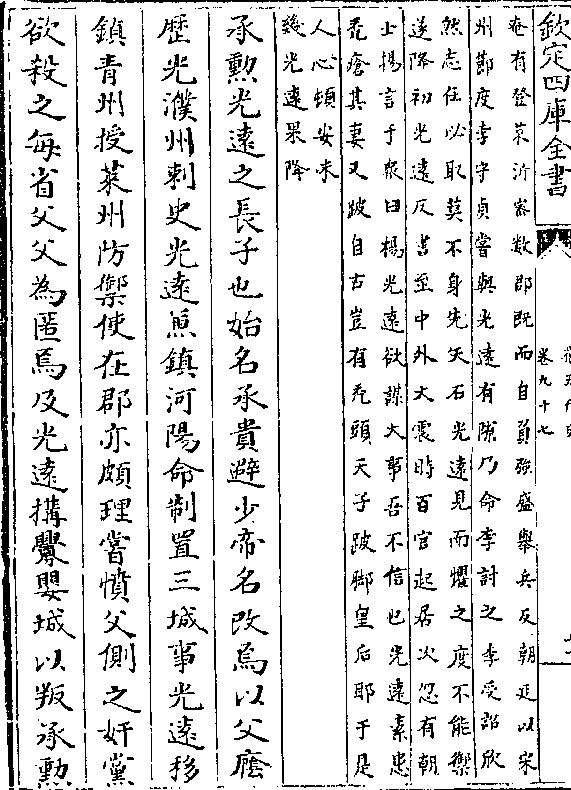 欽定四庫全書
舊五代史
卷九十七
奄有登萊沂密數郡既而自負強盛舉兵反朝廷以宋
州節度李守貞嘗與光遠有隙乃命李討之李受詔欣
然志在必取莫不身先矢石光遠見而懼之度不能禦
遂降初光遠反書至中外大震時百官起居次忽有朝
士揚言于衆曰楊光遠欲謀大事吾不信也光遠素患
禿瘡其妻又跛自古豈有禿頭天子跛脚皇后耶于是
人心頓安未
幾光遠果降
承勲光遠之長子也始名承貴避少帝名改焉以父廕
歷光濮州刺史光遠兼鎮河陽命制置三城事光遠移
鎮青州授萊州防禦使在郡亦頗理嘗憤父側之奸黨
欲殺之每省父父為匿焉及光遠搆釁嬰城以叛承勲